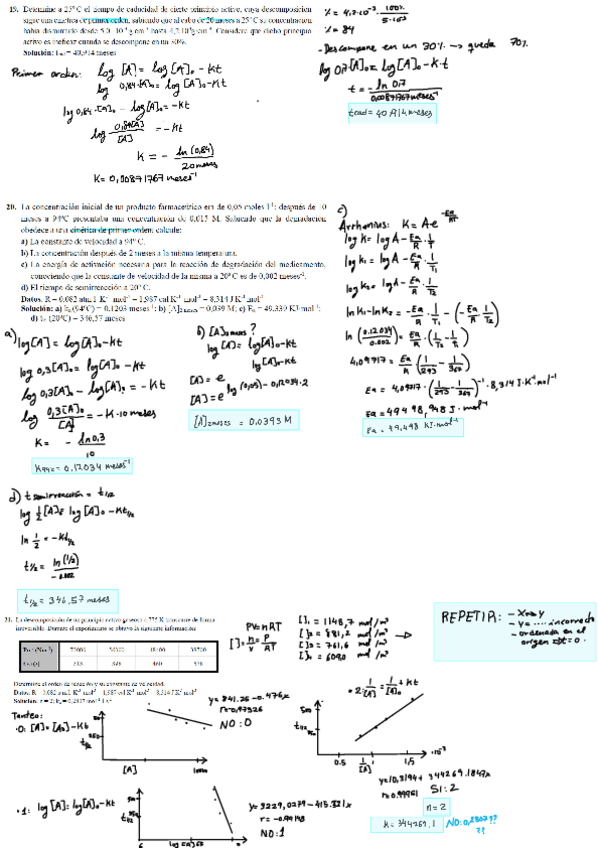 19. Determine a 25°C el tiempo de caducidad de cierto principio activo, cuya descomposición
sigue una cinética de primer orden, sabiendo que al cabo de 20 meses a 25°C su concentración
había disminuido desde 5,0·10⁻³ g·cm⁻³ hasta 4,2·10⁻³ g·cm⁻³. Considere que dicho principio
activo es ineficaz cuando se descompone en un 30%.
Solución: = 40,914 meses
Primer orden: log [A] = log [A]₀ - Kt
log 0,84·[A]₀ = log [A]₀ - Kt
log 0,84·[A]₀ - log[A]₀ = -Kt
log 0,84[A]/[A] = -Kt
K = - ln(0,84)/20 meses
K = 0,00871767 meses⁻¹
% = 4,2·10⁻³ · 100%/5·10⁻³
% = 84
- Descompone en un 30% → queda 70%
log 0,7[A]₀ = log[A]₀ - K·t
t = - ln 0,7/0,00871767 meses⁻¹
tcad = 40,914 meses
20. La concentración inicial de un producto farmacéutico era de 0,05 moles·l⁻¹; después de 10
meses a 94°C presentaba una concentración de 0,015 M. Sabiendo que la degradación
obedece a una cinética de primer orden, calcule:
a) La constante de velocidad a 94°C.
b) La concentración después de 2 meses a la misma temperatura.
c) La energía de activación necesaria para la reacción de degradación del medicamento,
conociendo que la constante de velocidad de la misma a 20°C es de 0,002 meses⁻¹.
d) El tiempo de semirreacción a 20°C.
Datos: R = 0,082 atm·l·K⁻¹·mol⁻¹ = 1,987 cal·K⁻¹·mol⁻¹ = 8,314 J·K⁻¹·mol⁻¹
Solución: a) k₁(94°C) = 0,1203 meses⁻¹; b) [A]₂ meses = 0,039 M; c) Eₐ = 49,339 KJ·mol⁻¹;
d) t₁/₂ (20°C) = 346,57 meses
a) log[A] = log[A]₀ - Kt
log 0,3[A]₀ = log[A]₀ - Kt
log 0,3[A]₀ - log[A]₀ = -Kt
log 0,3[A]₀/[A] = -K·10 meses
K = - ln 0,3/10
K94°C = 0,12034 meses⁻¹
b) [A]2 meses?
log[A] = log[A]₀ - Kt
[A] = e^log[A]₀-Kt
[A] = e^log(0,05) - 0,12034·2
[A]2 meses = 0,0393 M
c)
Arrhenius: K = A·e^-Ea/RT
log K = log A - Ea/R · 1/T
log K₁ = log A - Ea/R · 1/T₁
log K₂ = log A - Ea/R · 1/T₂
ln K₁ - ln K₂ = - Ea/R · 1/T₁ - (- Ea/R · 1/T₂)
ln (0,12034/0,002) = Ea/R · (1/T₂ - 1/T₁)
4,09717 = Ea/R (1/293 - 1/367)
Ea = 4,09717 · (1/293 - 1/367)⁻¹ · 8,314 J·K⁻¹·mol⁻¹
Ea = 49498,948 J·mol⁻¹
Ea = 49,498 KJ·mol⁻¹
d) t semirreacción = t1/2
log 1/2 [A]₀ = log [A]₀ - Kt1/2
ln 1/2 = -Kt1/2
t1/2 = ln(1/2)/-0.002
t1/2 = 346,57 meses
21. La descomposición de un principio activo gaseoso a 775 K transcurre de forma
irreversible. Durante el experimento se obtuvo la siguiente información:
Determine el orden de reacción y su constante de velocidad.
Datos: R = 0,082 atm·l·K⁻¹·mol⁻¹ = 1,987 cal·K⁻¹·mol⁻¹ = 8,314 J·K⁻¹·mol⁻¹
PV = nRT
[ ] = n/V = P/RT
[ ]₁ = 1148,7 mol/m³
[ ]₂ = 881,2 mol/m³
[ ]₃ = 761,6 mol/m³
[ ]₄ = 609,0 mol/m³
REPETIR: - X → y
- y = .... incorrecto
- ordenada en el
origen =0.
Tanteo:
·0: [A] = [A₀] - Kt
t1/2
[A]
1000
NO: 0
·2: 1/[A] = 1/[A]₀ + Kt
t1/2
0.5
1/[A]
1,5
·10⁻³
SI: 2
n = 2
K = 344269,1
NO: 0,2807??
??
·1: log [A] = log[A]₀ - Kt
t1/2
NO: 1